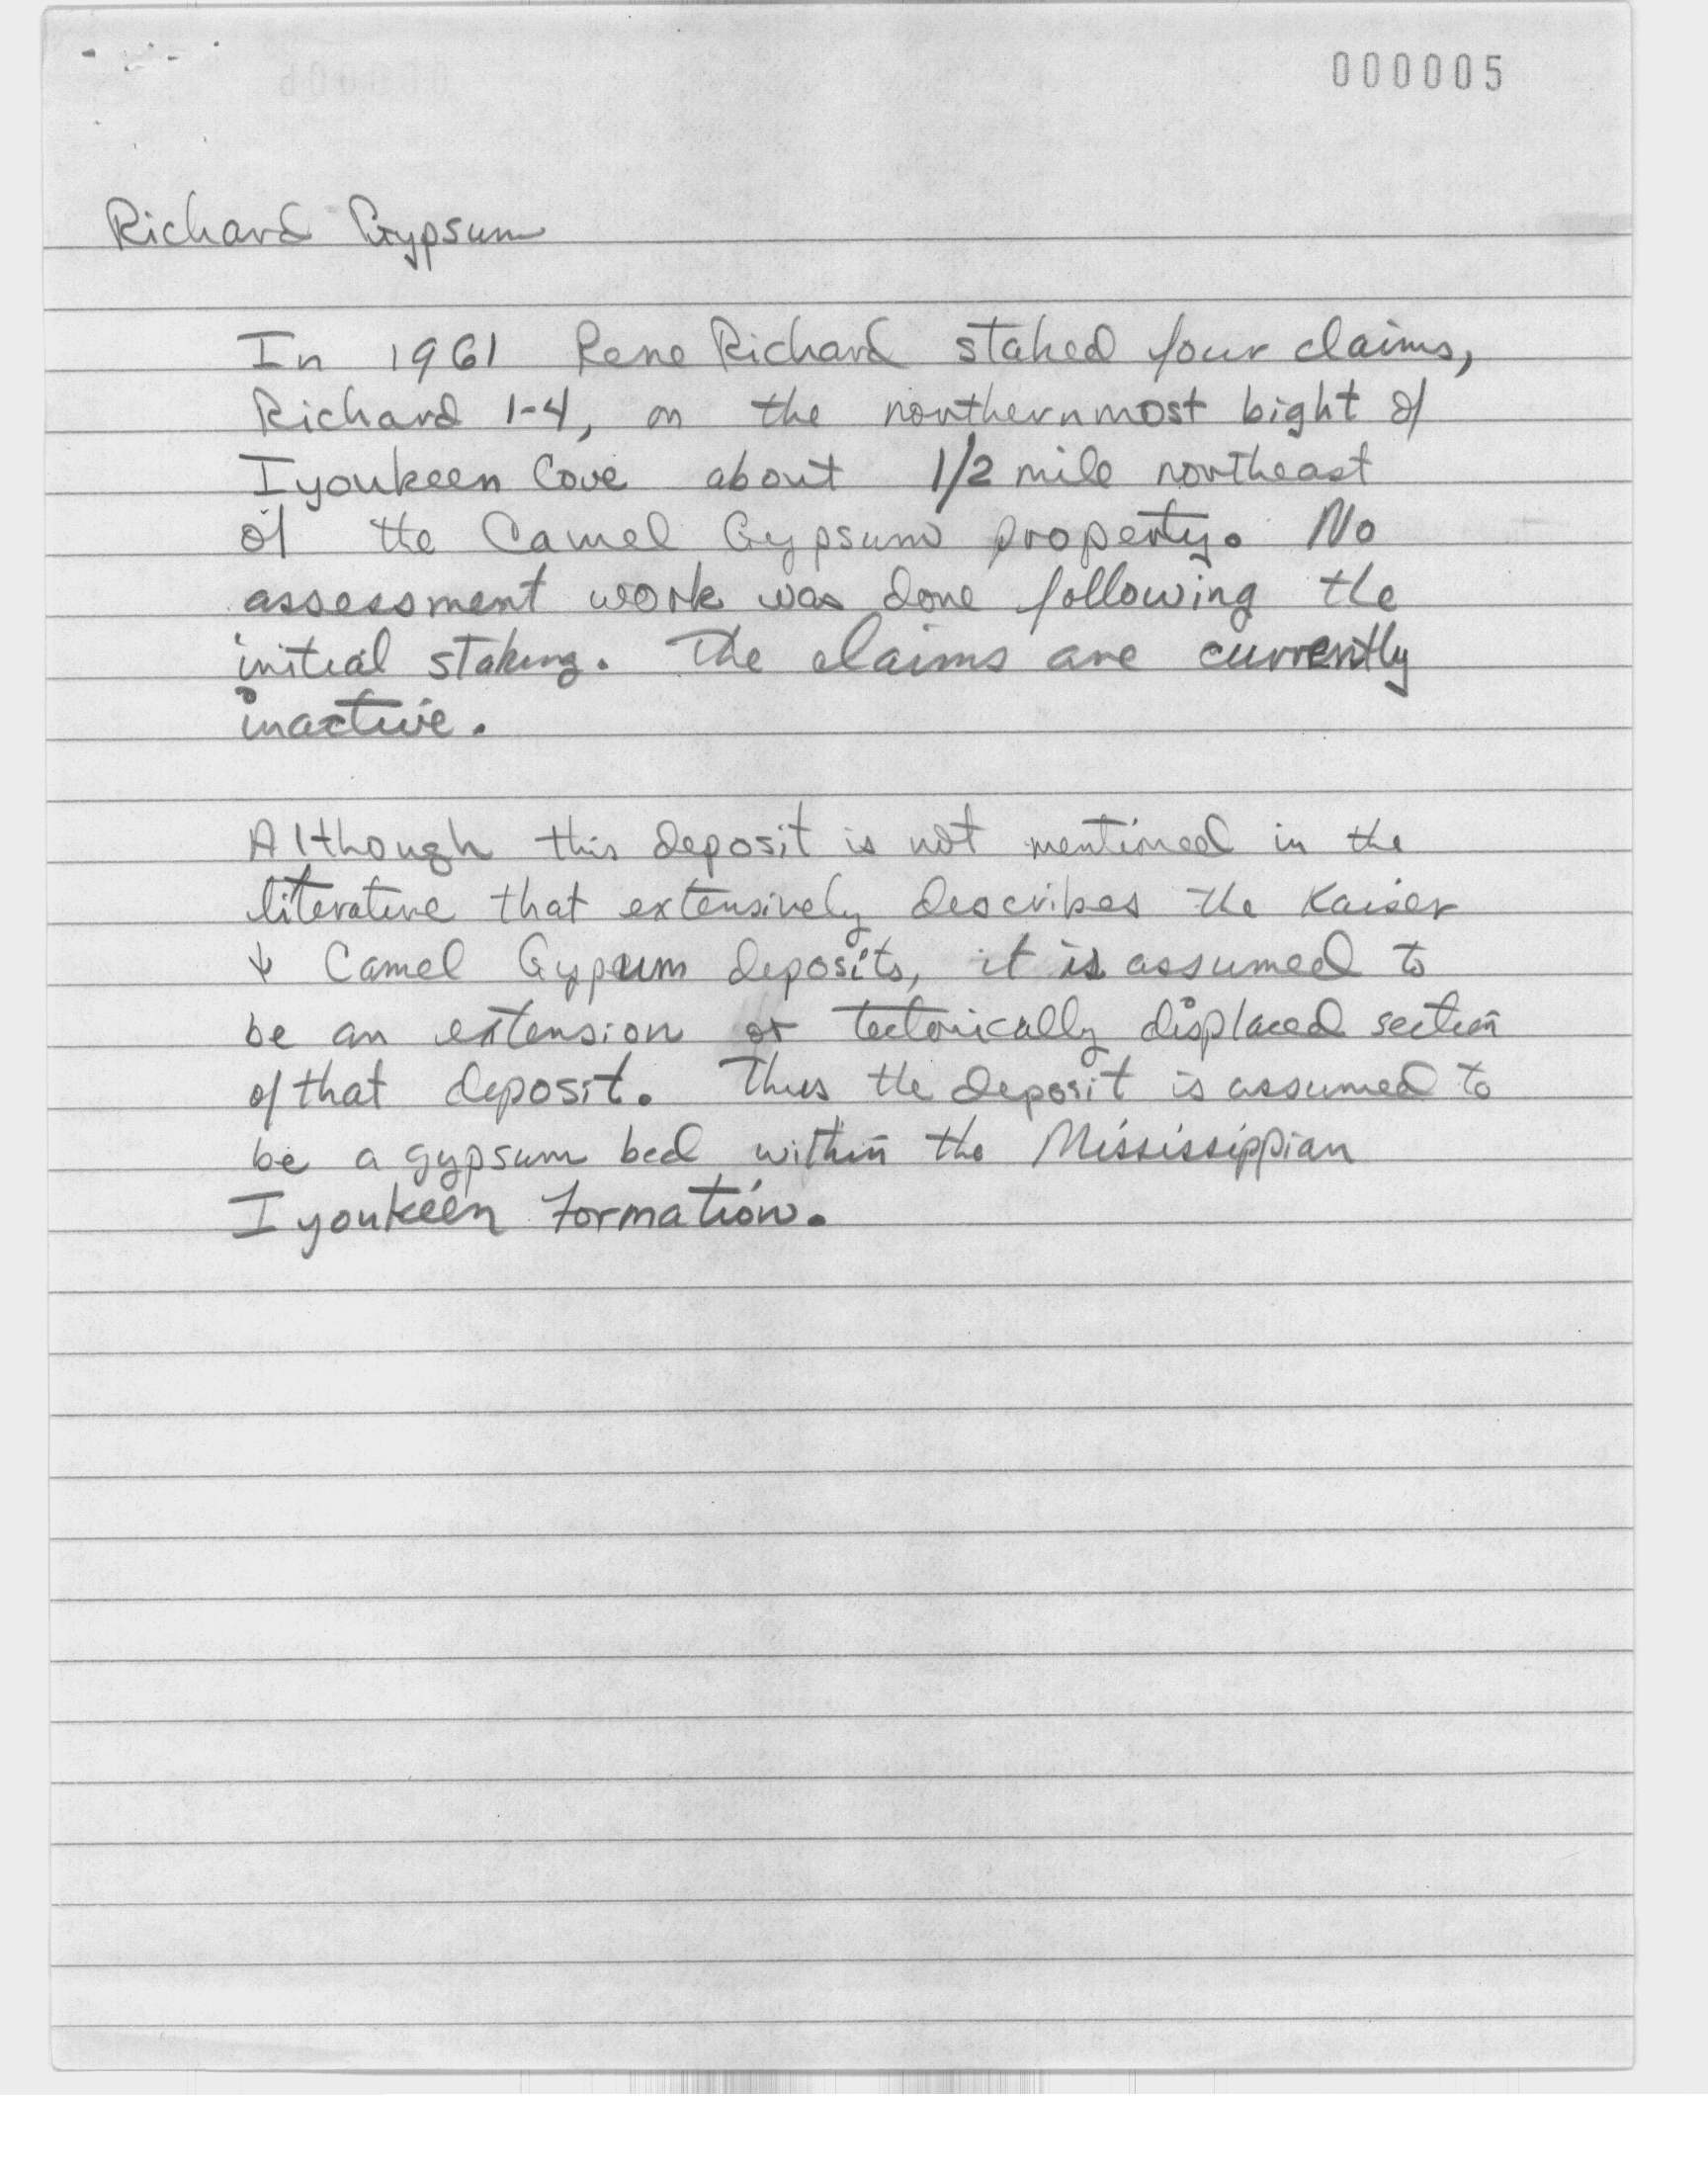 000005
Richard Gypsum
In 1961 Rene Richard staked four claims,
Richard 1-4, on the northernmost bight of
Iyoukeen Cove about 1/2 mile northeast
of the Camel Gypsum property. No
assessment work was done following the
initial staking. The claims are currently
inactive.
Although this deposit is not mentioned in the
literature that extensively describes the Kaiser
& Camel Gypsum deposits, it is assumed to
be an extension or tectonically displaced section
of that deposit. Thus the deposit is assumed to
be a gypsum bed within the Mississippian
Iyoukeen Formation.